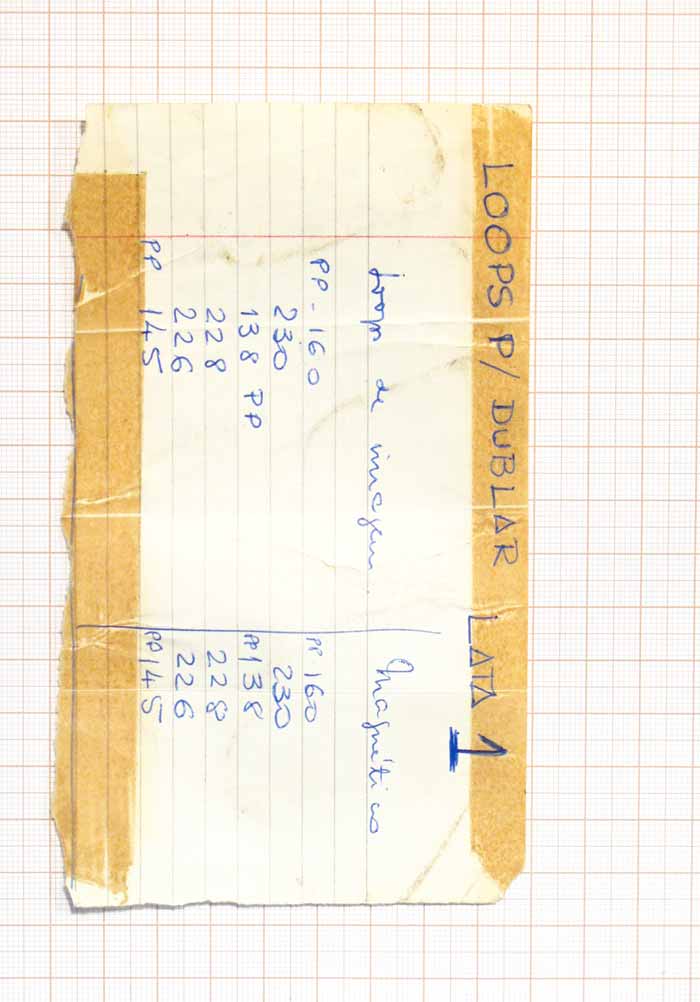 LOOPS P/ DUBLAR LATA 1
Loop de imagem Magnético
PP - 160 PP 160
230 230
138 PP PP 138
228 228
226 226
PP 145 PP 145